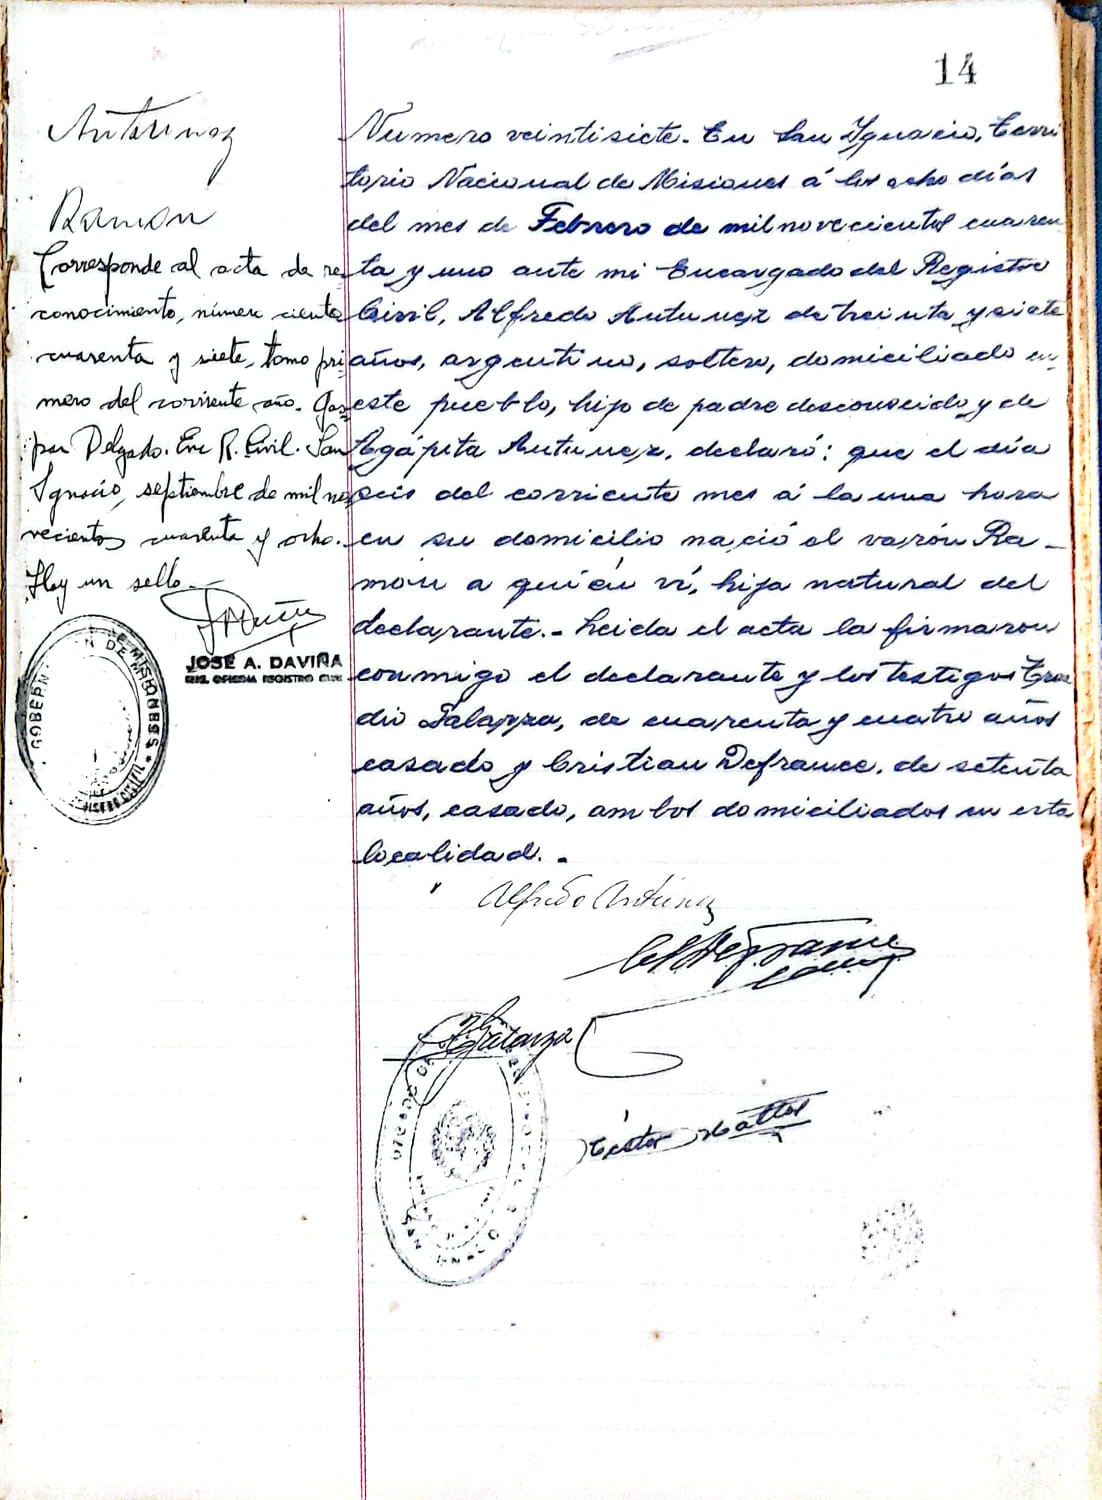 14
Antunez
Ramon
Corresponde al acta de re-
conocimiento, número ciento
cuarenta y siete, tomo pri-
mero del corriente año. Gas-
par Delgado. Enc R. Civil. San
Ignacio, septiembre de mil no-
vecientos cuarenta y ocho.
Hay un sello.-
JOSE A. DAVIÑA
ENC. OFICINA REGISTRO CIVIL
GOBERNACION DE MISIONES
Numero veintisiete. En San Ignacio, Terri
torio Nacional de Misiones á los ocho días
del mes de Febrero de mil novecientos cuaren
ta y uno ante mi Encargado del Registro
Civil, Alfredo Antunez de treinta y siete
años, argentino, soltero, domiciliado en
este pueblo, hijo de padre desconocido y de
Agápita Antunez, declaró: que el día
seis del corriente mes á la una hora
en su domicilio nació el varón Ra-
món a quién ví, hijo natural del
declarante.- Leida el acta la firmaron
conmigo el declarante y los testigos
dio Galarza, de cuarenta y cuatro años
casado y Cristian Defrance, de setenta
años, casado, ambos domiciliados en esta
localidad.-
Alfredo Antunez
Galarza
Néstor Mattos